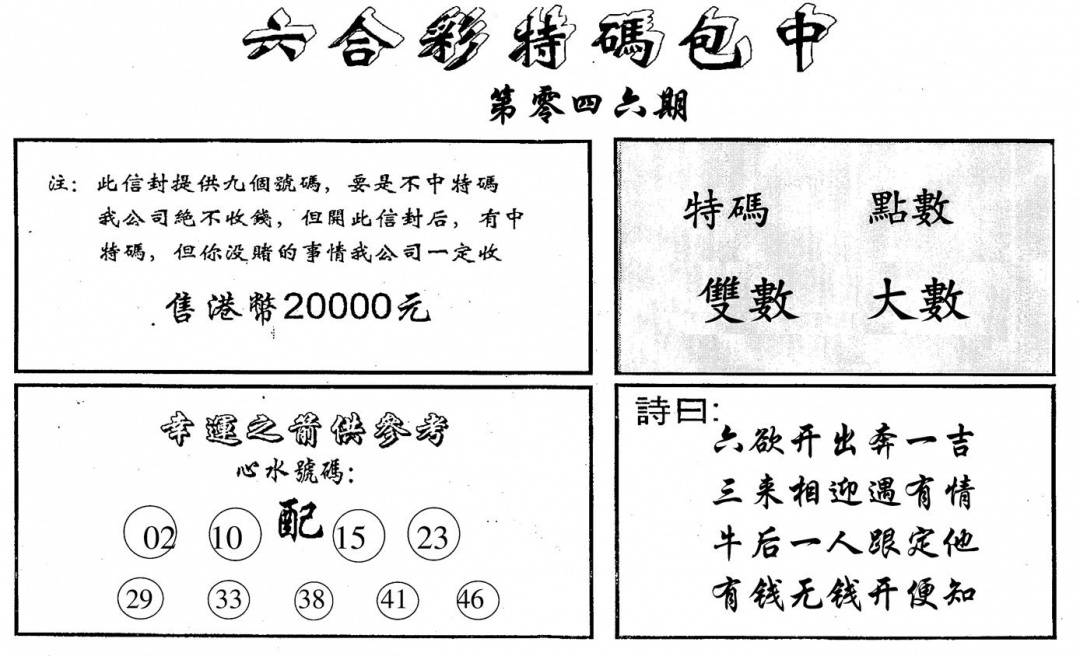 六合彩特碼包中
第零四六期
注：此信封提供九個號碼，要是不中特碼
我公司絕不收錢，但開此信封后，有中
特碼，但你没賭的事情我公司一定收
售港幣20000元
特碼 點數
雙數 大數
幸運之箭供參考
心水號碼：
配
02 10 15 23
29 33 38 41 46
詩曰：
六欲开出奔一吉
三来相迎遇有情
牛后一人跟定他
有钱无钱开便知